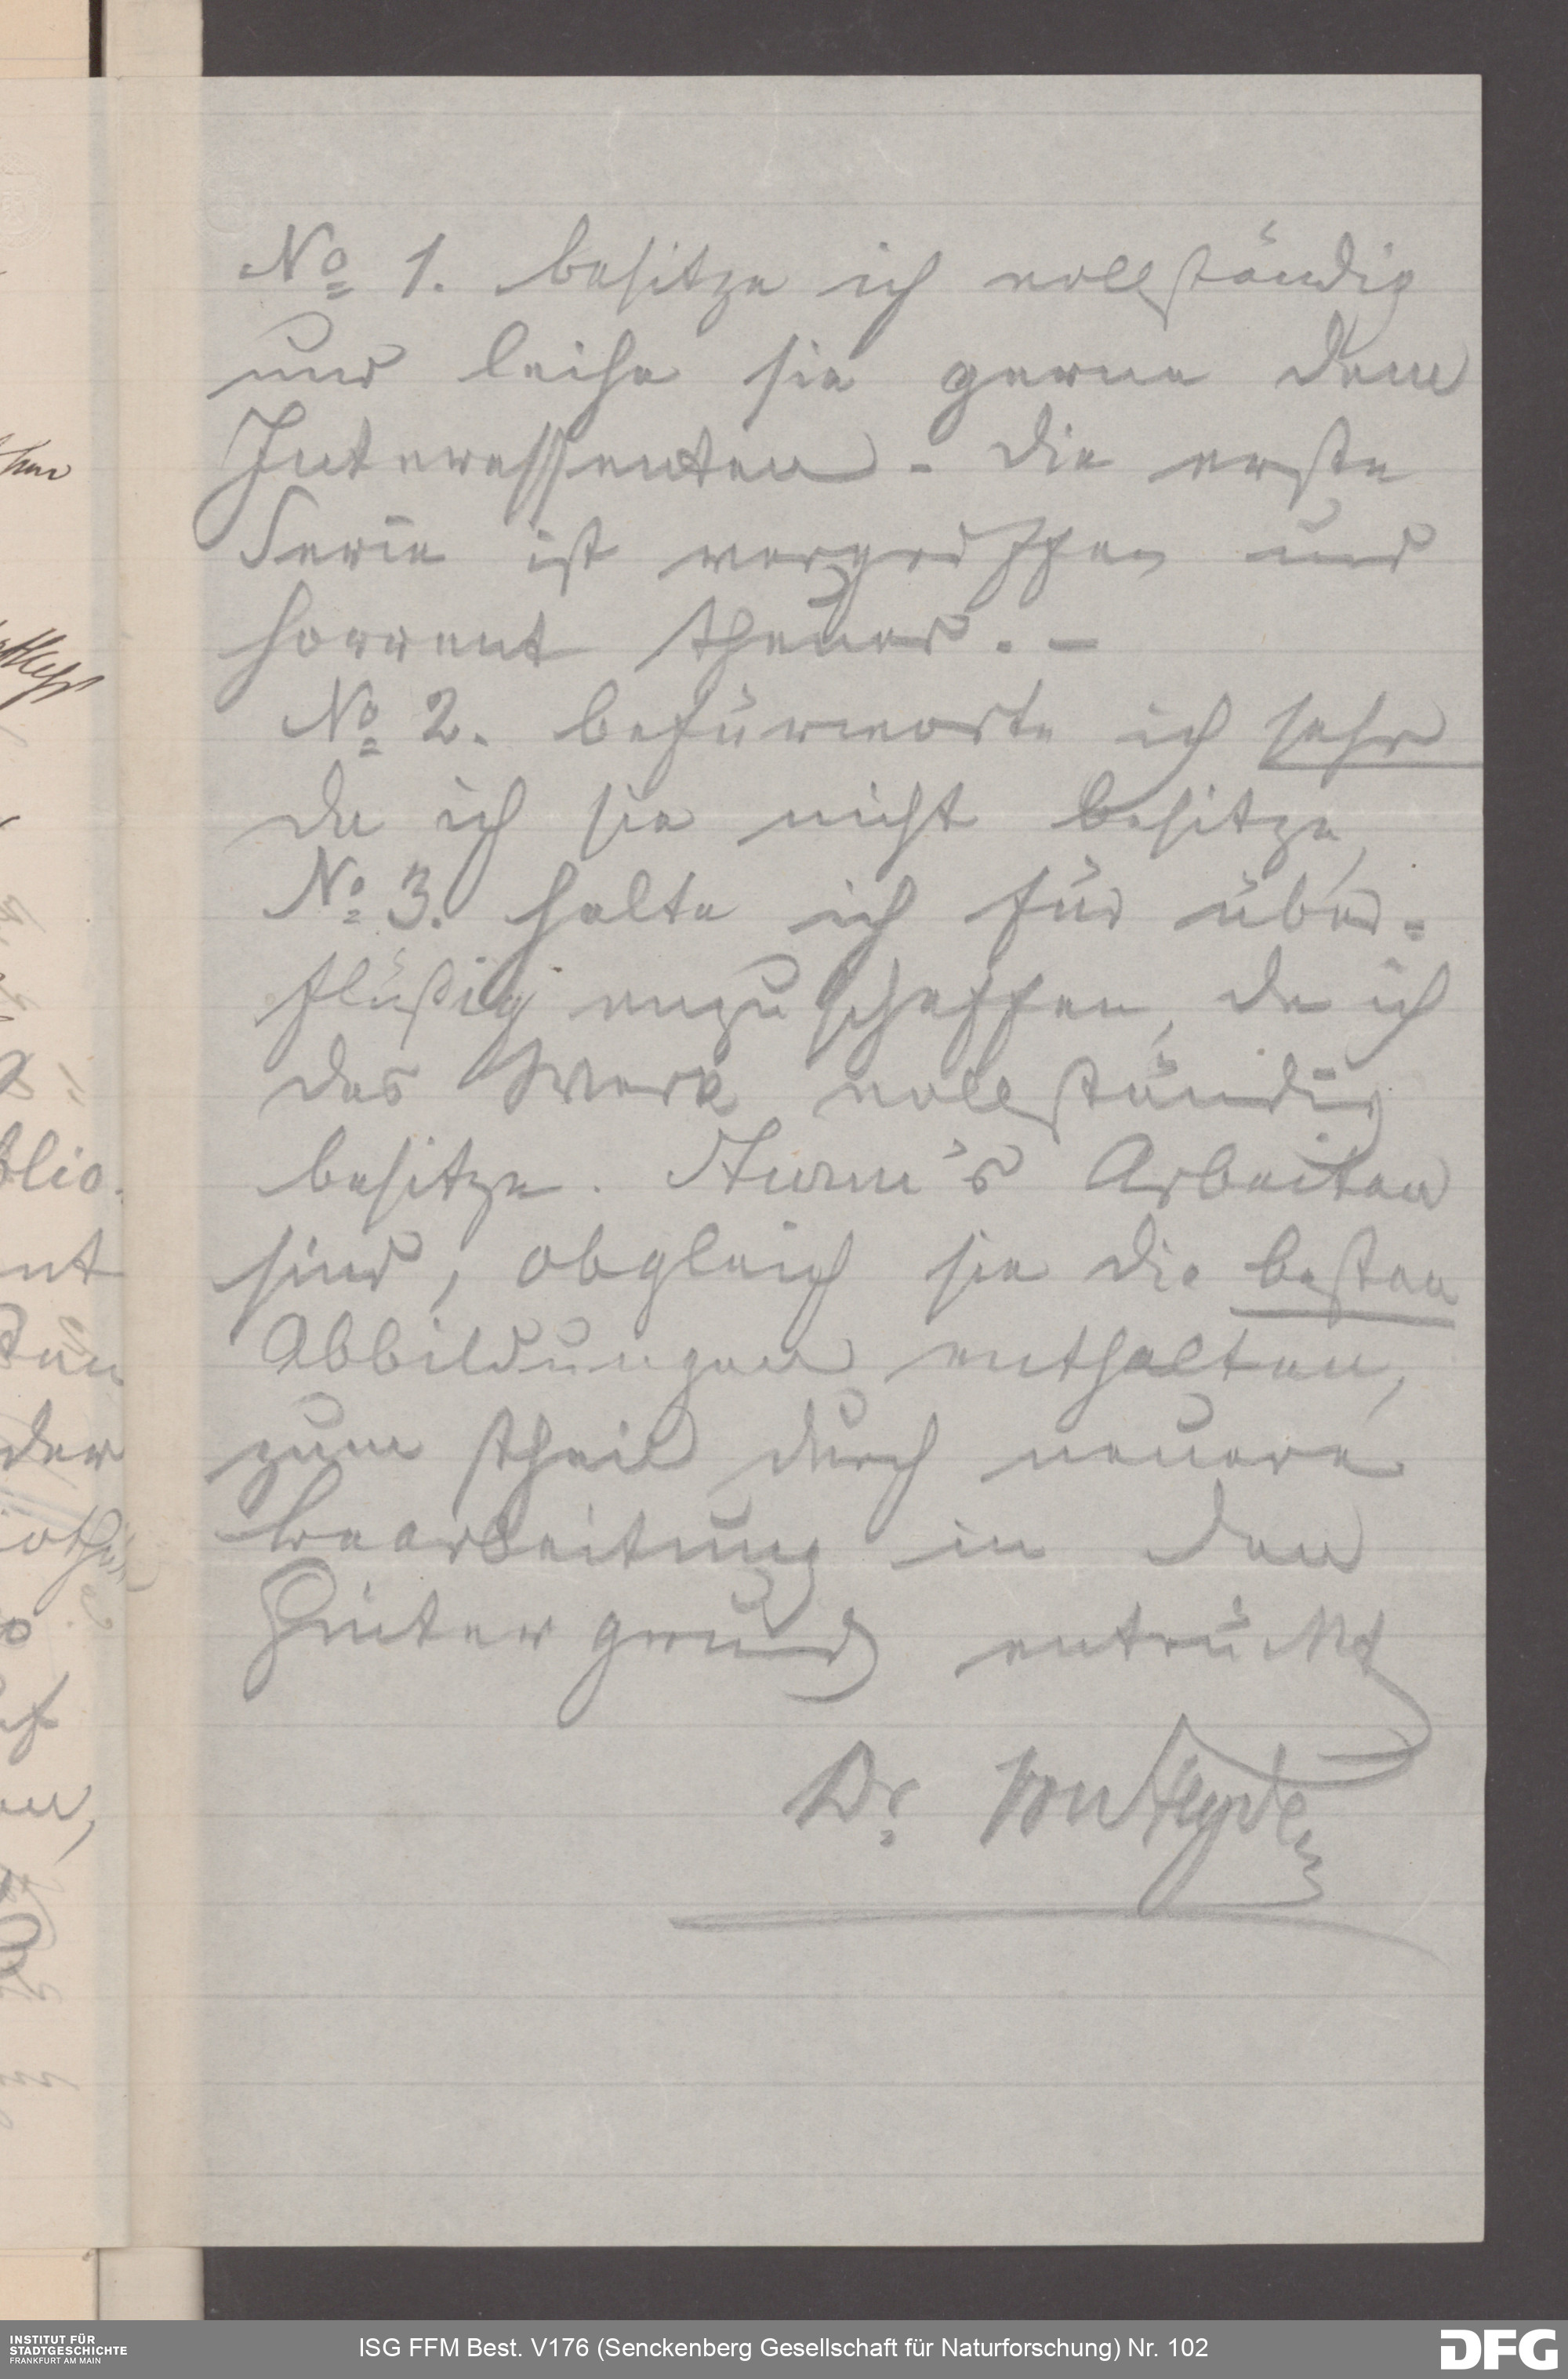 No 1. besitze ich vollständig
und leihe sie gerne dem
Interessenten - die erste
Serie ist vergriffen und
horrent theuer. -
No 2. befürworte ich sehr
da ich sie nicht besitze,
No 3. halte ich für über=
flüßig anzuschaffen, da ich
das Werk vollständig
besitze. Sturm's Arbeiten
sind, obgleich sie die besten
Abbildungen enthalten,
zum theil durch neuere
bearbeitung in den
Hintergrund entrückt
Dr. von Heyden
blio.
nt
der
INSTITUT FÜR
STADTGESCHICHTE
FRANKFURT AM MAIN
ISG FFM Best. V176 (Senckenberg Gesellschaft für Naturforschung) Nr. 102
DFG